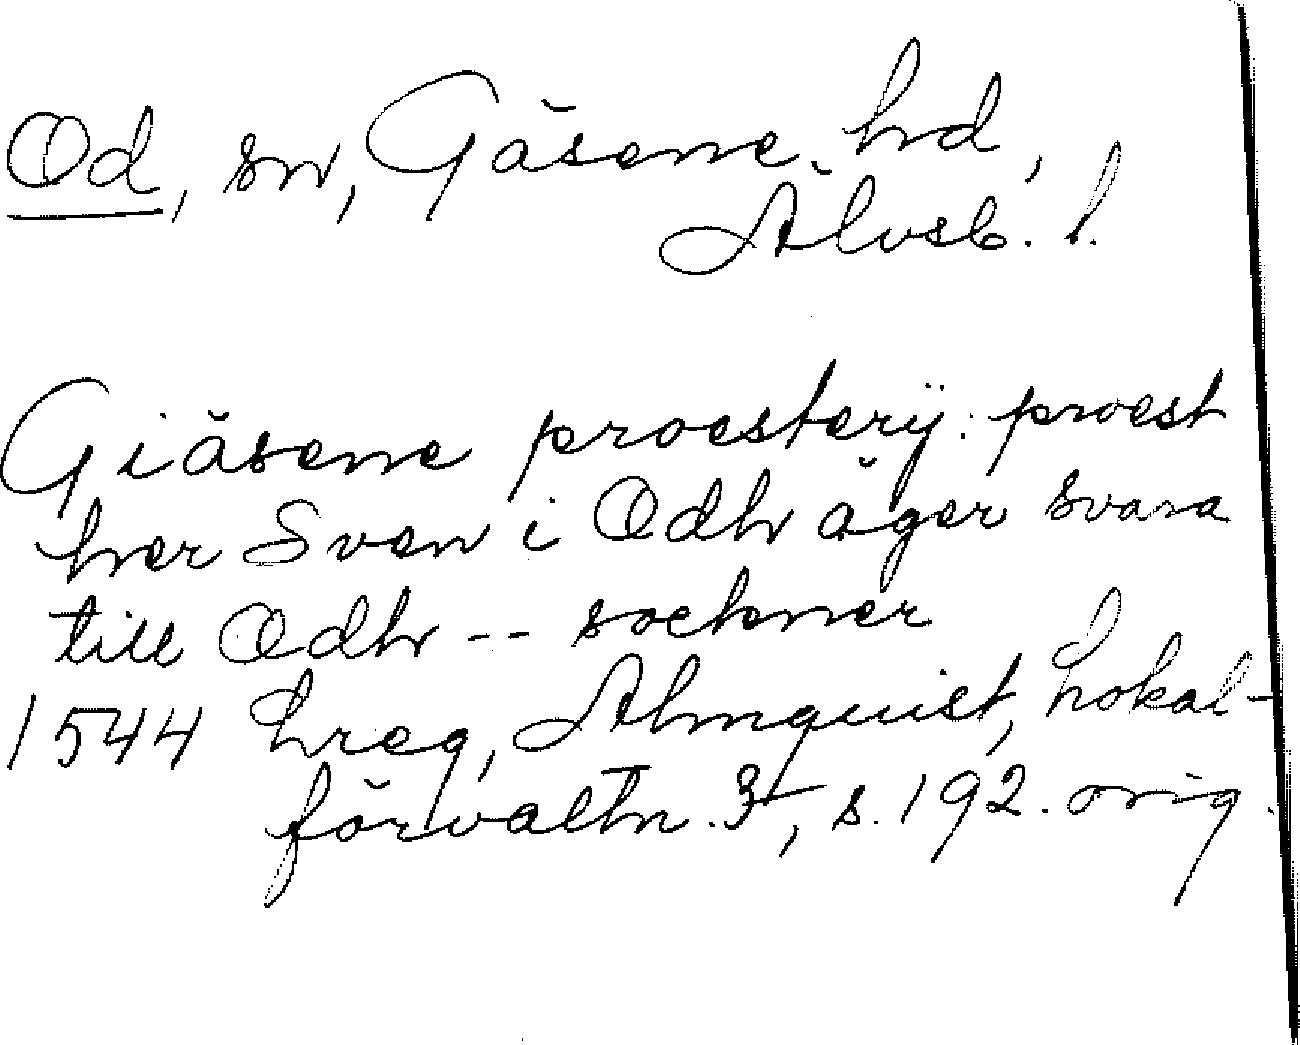 Od, sn, Gäsene hd,
Älvsb. l.
Giäsene proesterÿ: proest
her Sven i Odh äger svara
till Odh -- sockner
1544 Lreg, Almquist, Lokal-
förvaltn. 3, s. 192. orig.